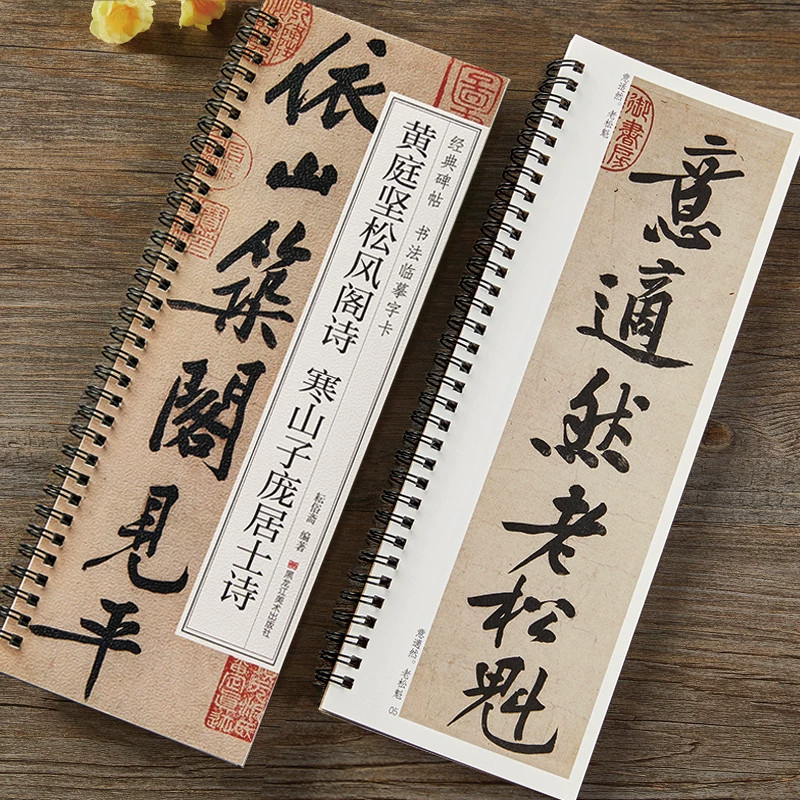 依山築閣見平
经典碑帖 书法临摹字卡
黄庭坚松风阁诗 寒山子庞居士诗
耘俗斋 编著
黑龙江美术出版社
意适然。老松魁
御書房
意適然老松魁
意适然。老松魁
05